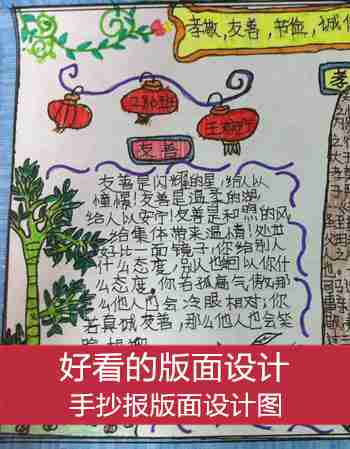 孝敬,友善,节俭,诚信
286班
友善
孝
友善是闪耀的星,给人以
憧憬!友善是温柔的湖,
给人以安宁!友善是和煦的风
给集体带来温情!处世
好比一面镜子,你给别人
什么态度,别人也回以你什
么态度。你若孤高气傲,那
么他人也会冷眼相对;你
若真诚友善,那么他人也会笑
好看的版面设计
手抄报版面设计图